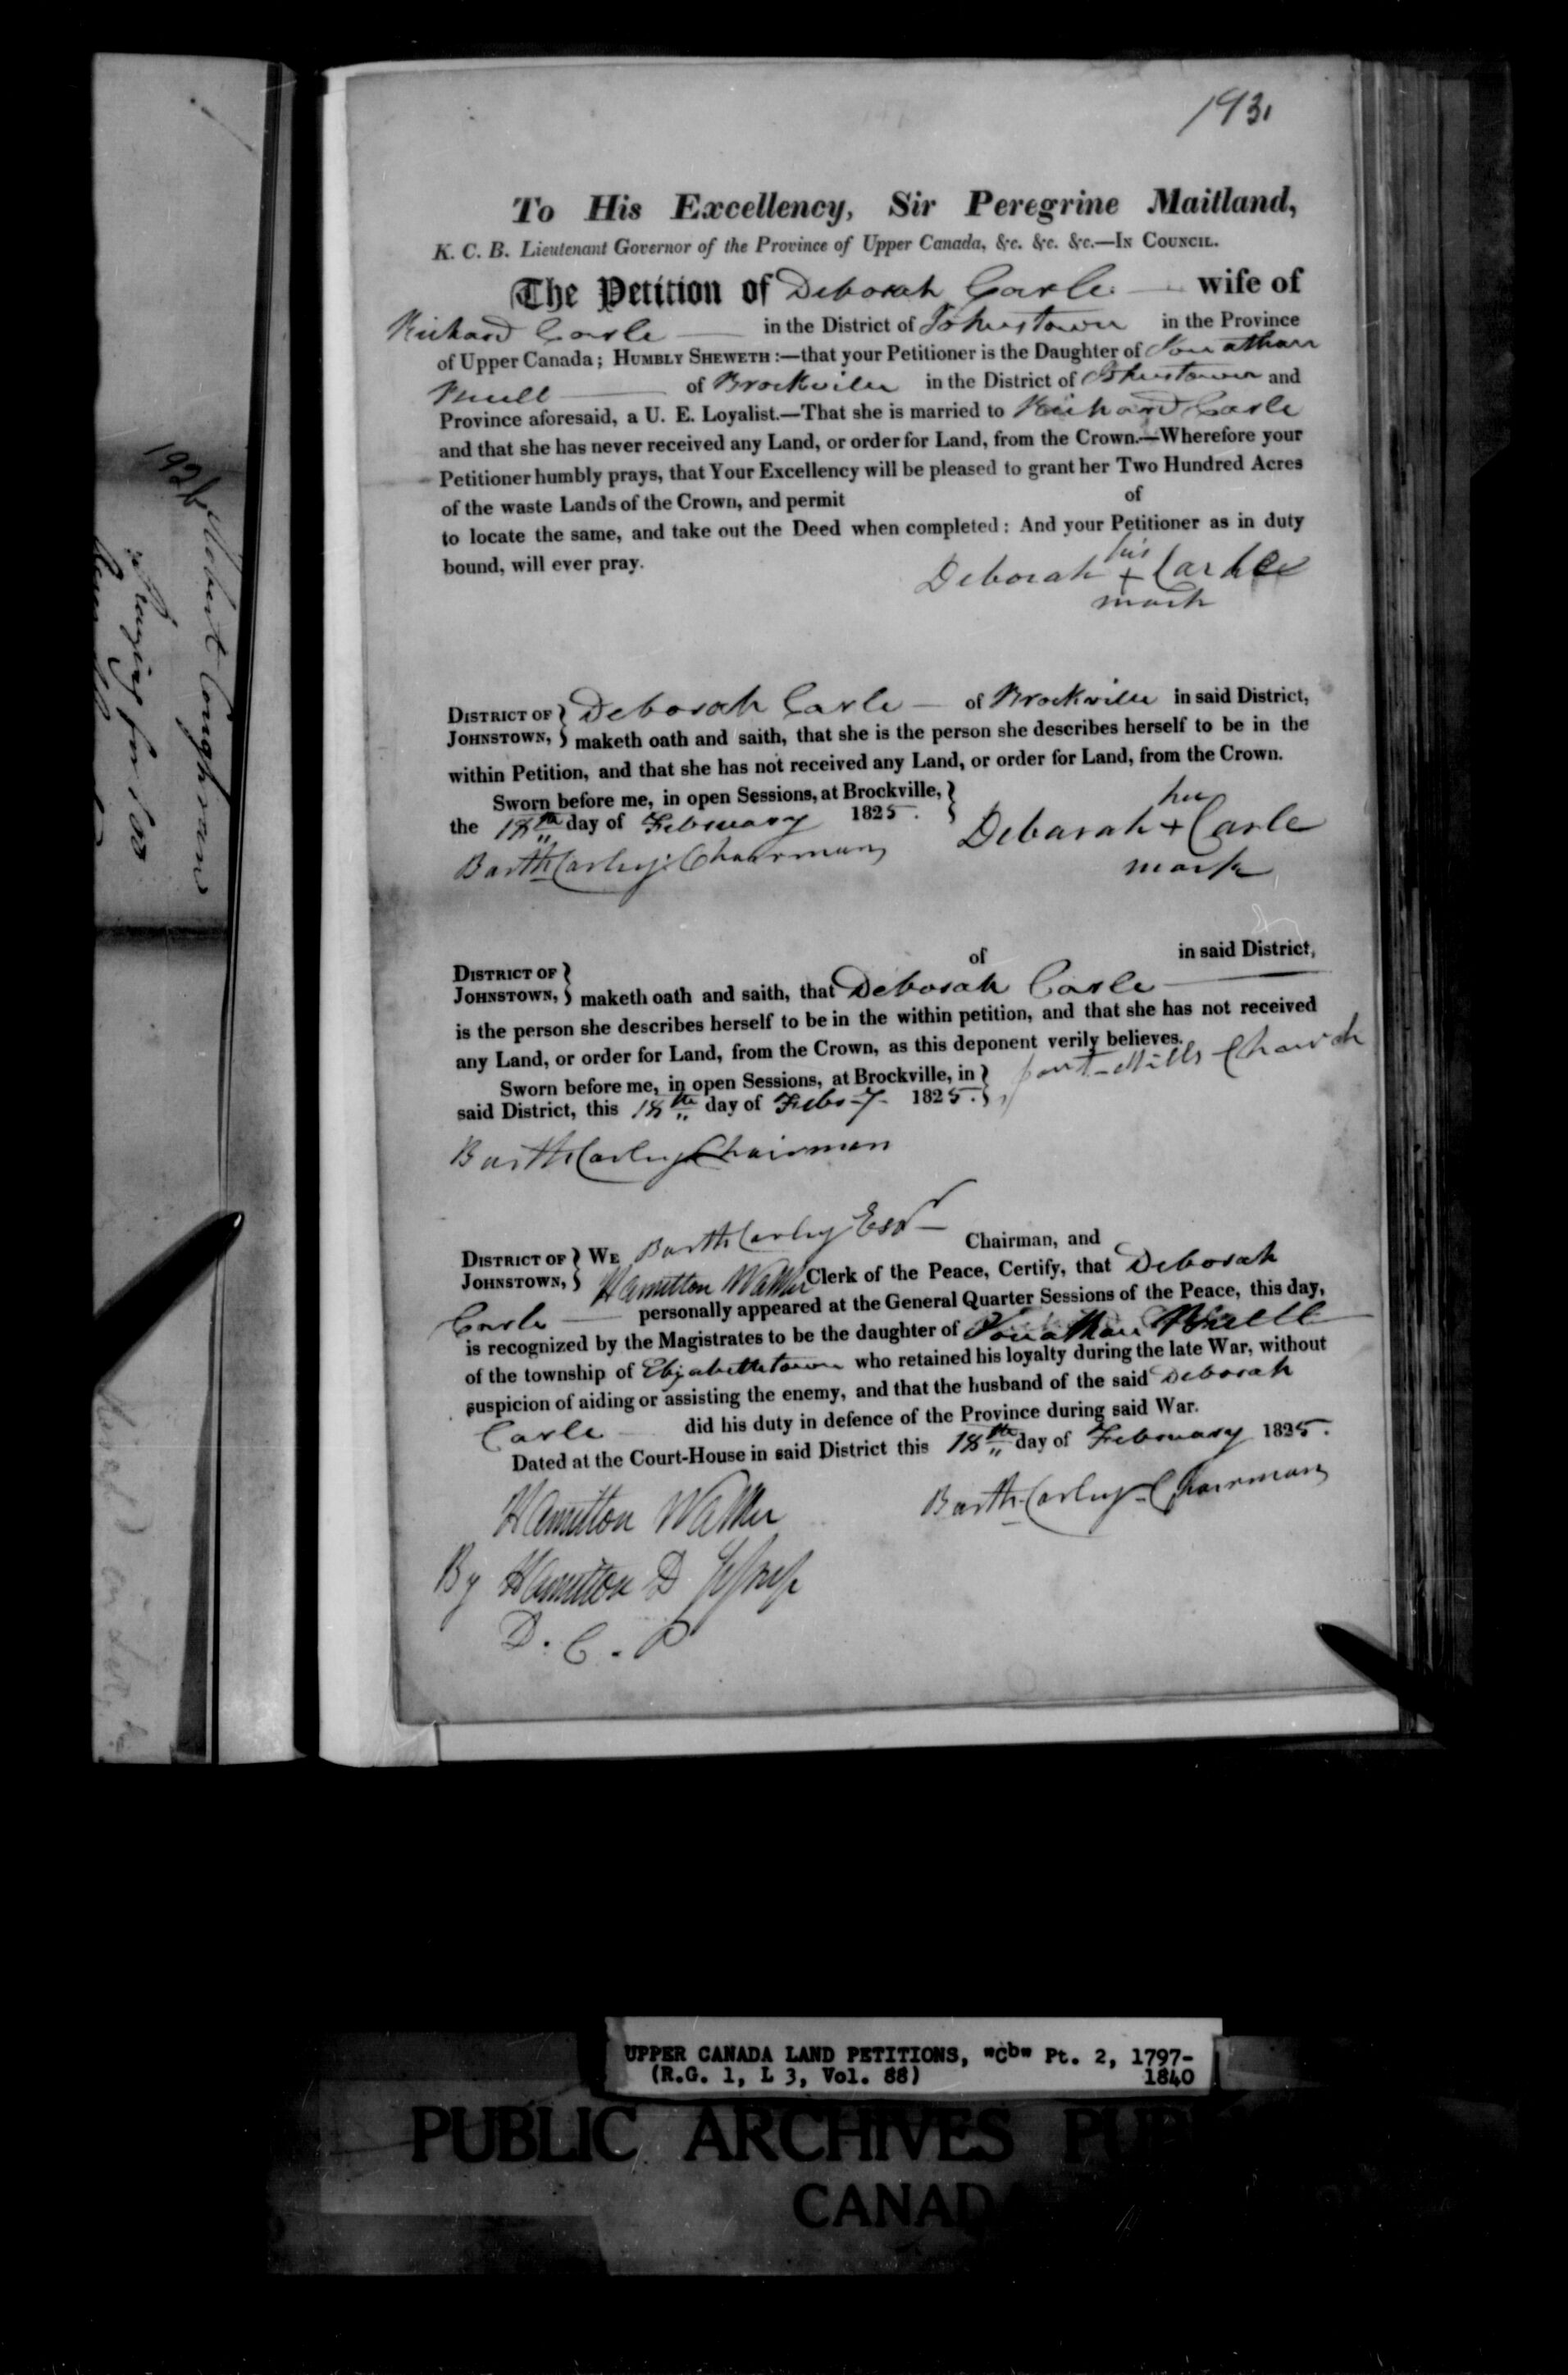 193
To His Excellency, Sir Peregrine Maitland,
K. C. B. Lieutenant Governor of the Province of Upper Canada, &c. &c. &c.—In Council.
The Petition of Deborah Carle wife of
Richard Carle in the District of Johnstown in the Province
of Upper Canada; Humbly Sheweth:—that your Petitioner is the Daughter of Jonathan
of Brockville in the District of Johnstown and
Province aforesaid, a U. E. Loyalist.—That she is married to Richard Carle
and that she has never received any Land, or order for Land, from the Crown.—Wherefore your
Petitioner humbly prays, that Your Excellency will be pleased to grant her Two Hundred Acres
of the waste Lands of the Crown, and permit of
to locate the same, and take out the Deed when completed: And your Petitioner as in duty
bound, will ever pray.
his
Deborah +
mark
District of Johnstown, } Deborah Carle of Brockville in said District,
maketh oath and saith, that she is the person she describes herself to be in the
within Petition, and that she has not received any Land, or order for Land, from the Crown.
Sworn before me, in open Sessions, at Brockville, }
the 18th day of February 1825.
her
Deborah + Carle
mark
Barth Carley Chairman
District of Johnstown, } of in said District,
maketh oath and saith, that Deborah Carle
is the person she describes herself to be in the within petition, and that she has not received
any Land, or order for Land, from the Crown, as this deponent verily believes.
Sworn before me, in open Sessions, at Brockville, in }
said District, this 18th day of Feby 1825. }
Barth Carley Chairman
District of Johnstown, } We Barth Carley Esqr Chairman, and
Hamilton Walker Clerk of the Peace, Certify, that Deborah
Carle personally appeared at the General Quarter Sessions of the Peace, this day,
is recognized by the Magistrates to be the daughter of Jonathan
of the township of Elizabethtown who retained his loyalty during the late War, without
suspicion of aiding or assisting the enemy, and that the husband of the said Deborah
Carle did his duty in defence of the Province during said War.
Dated at the Court-House in said District this 18th day of February 1825.
Hamilton Walker
Barth Carley Chairman
By Hamilton D Jessup
D. C. P
192b
Robert
Praying for
UPPER CANADA LAND PETITIONS, "Cb" Pt. 2, 1797-
(R.G. 1, L 3, Vol. 88) 1840
PUBLIC ARCHIVES PUB
CANADA